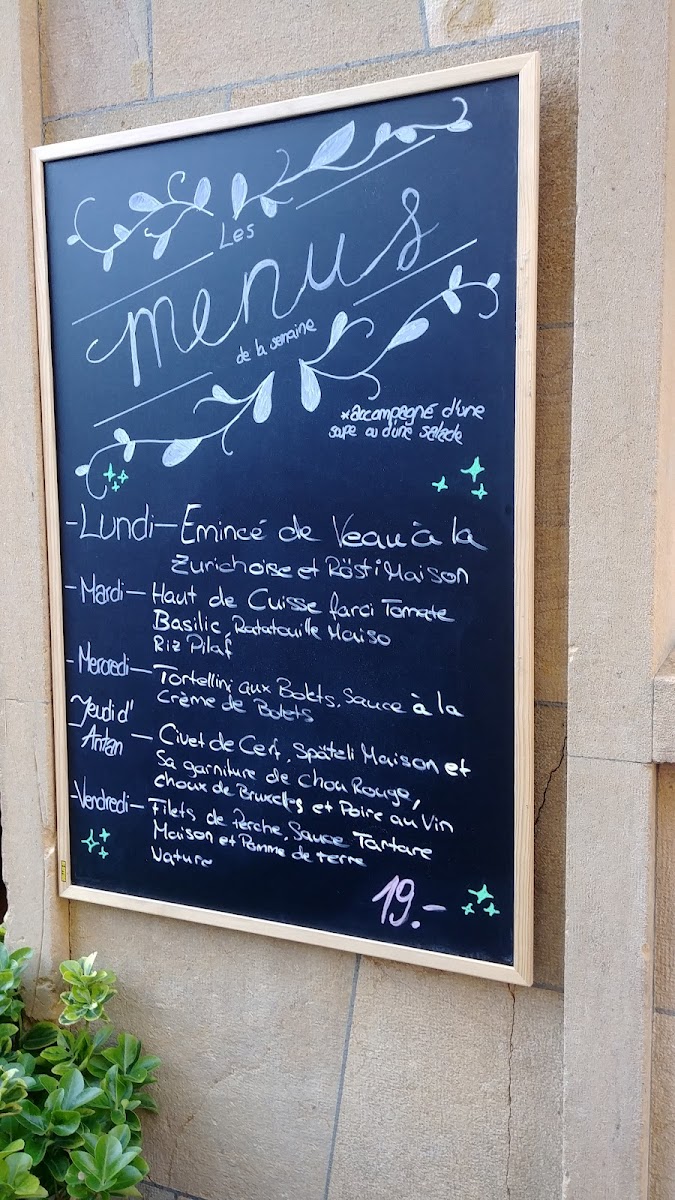 Les
menus
de la semaine
*accompagné d'une
soupe ou d'une salade
-Lundi- Emincé de Veau à la
Zurichoise et Rösti Maison
-Mardi- Haut de Cuisse farci Tomate
Basilic, Ratatouille Maiso
Riz Pilaf
-Mercredi- Tortellini aux Bolets, Sauce à la
Crème de Bolets
Jeudi d'
Antan - Civet de Cerf, Späteli Maison et
Sa garniture de Chou Rouge,
choux de Bruxelles et Poire au Vin
-Vendredi- Filets de Perche, Sauce Tartare
Maison et Pomme de terre
Nature
19.-